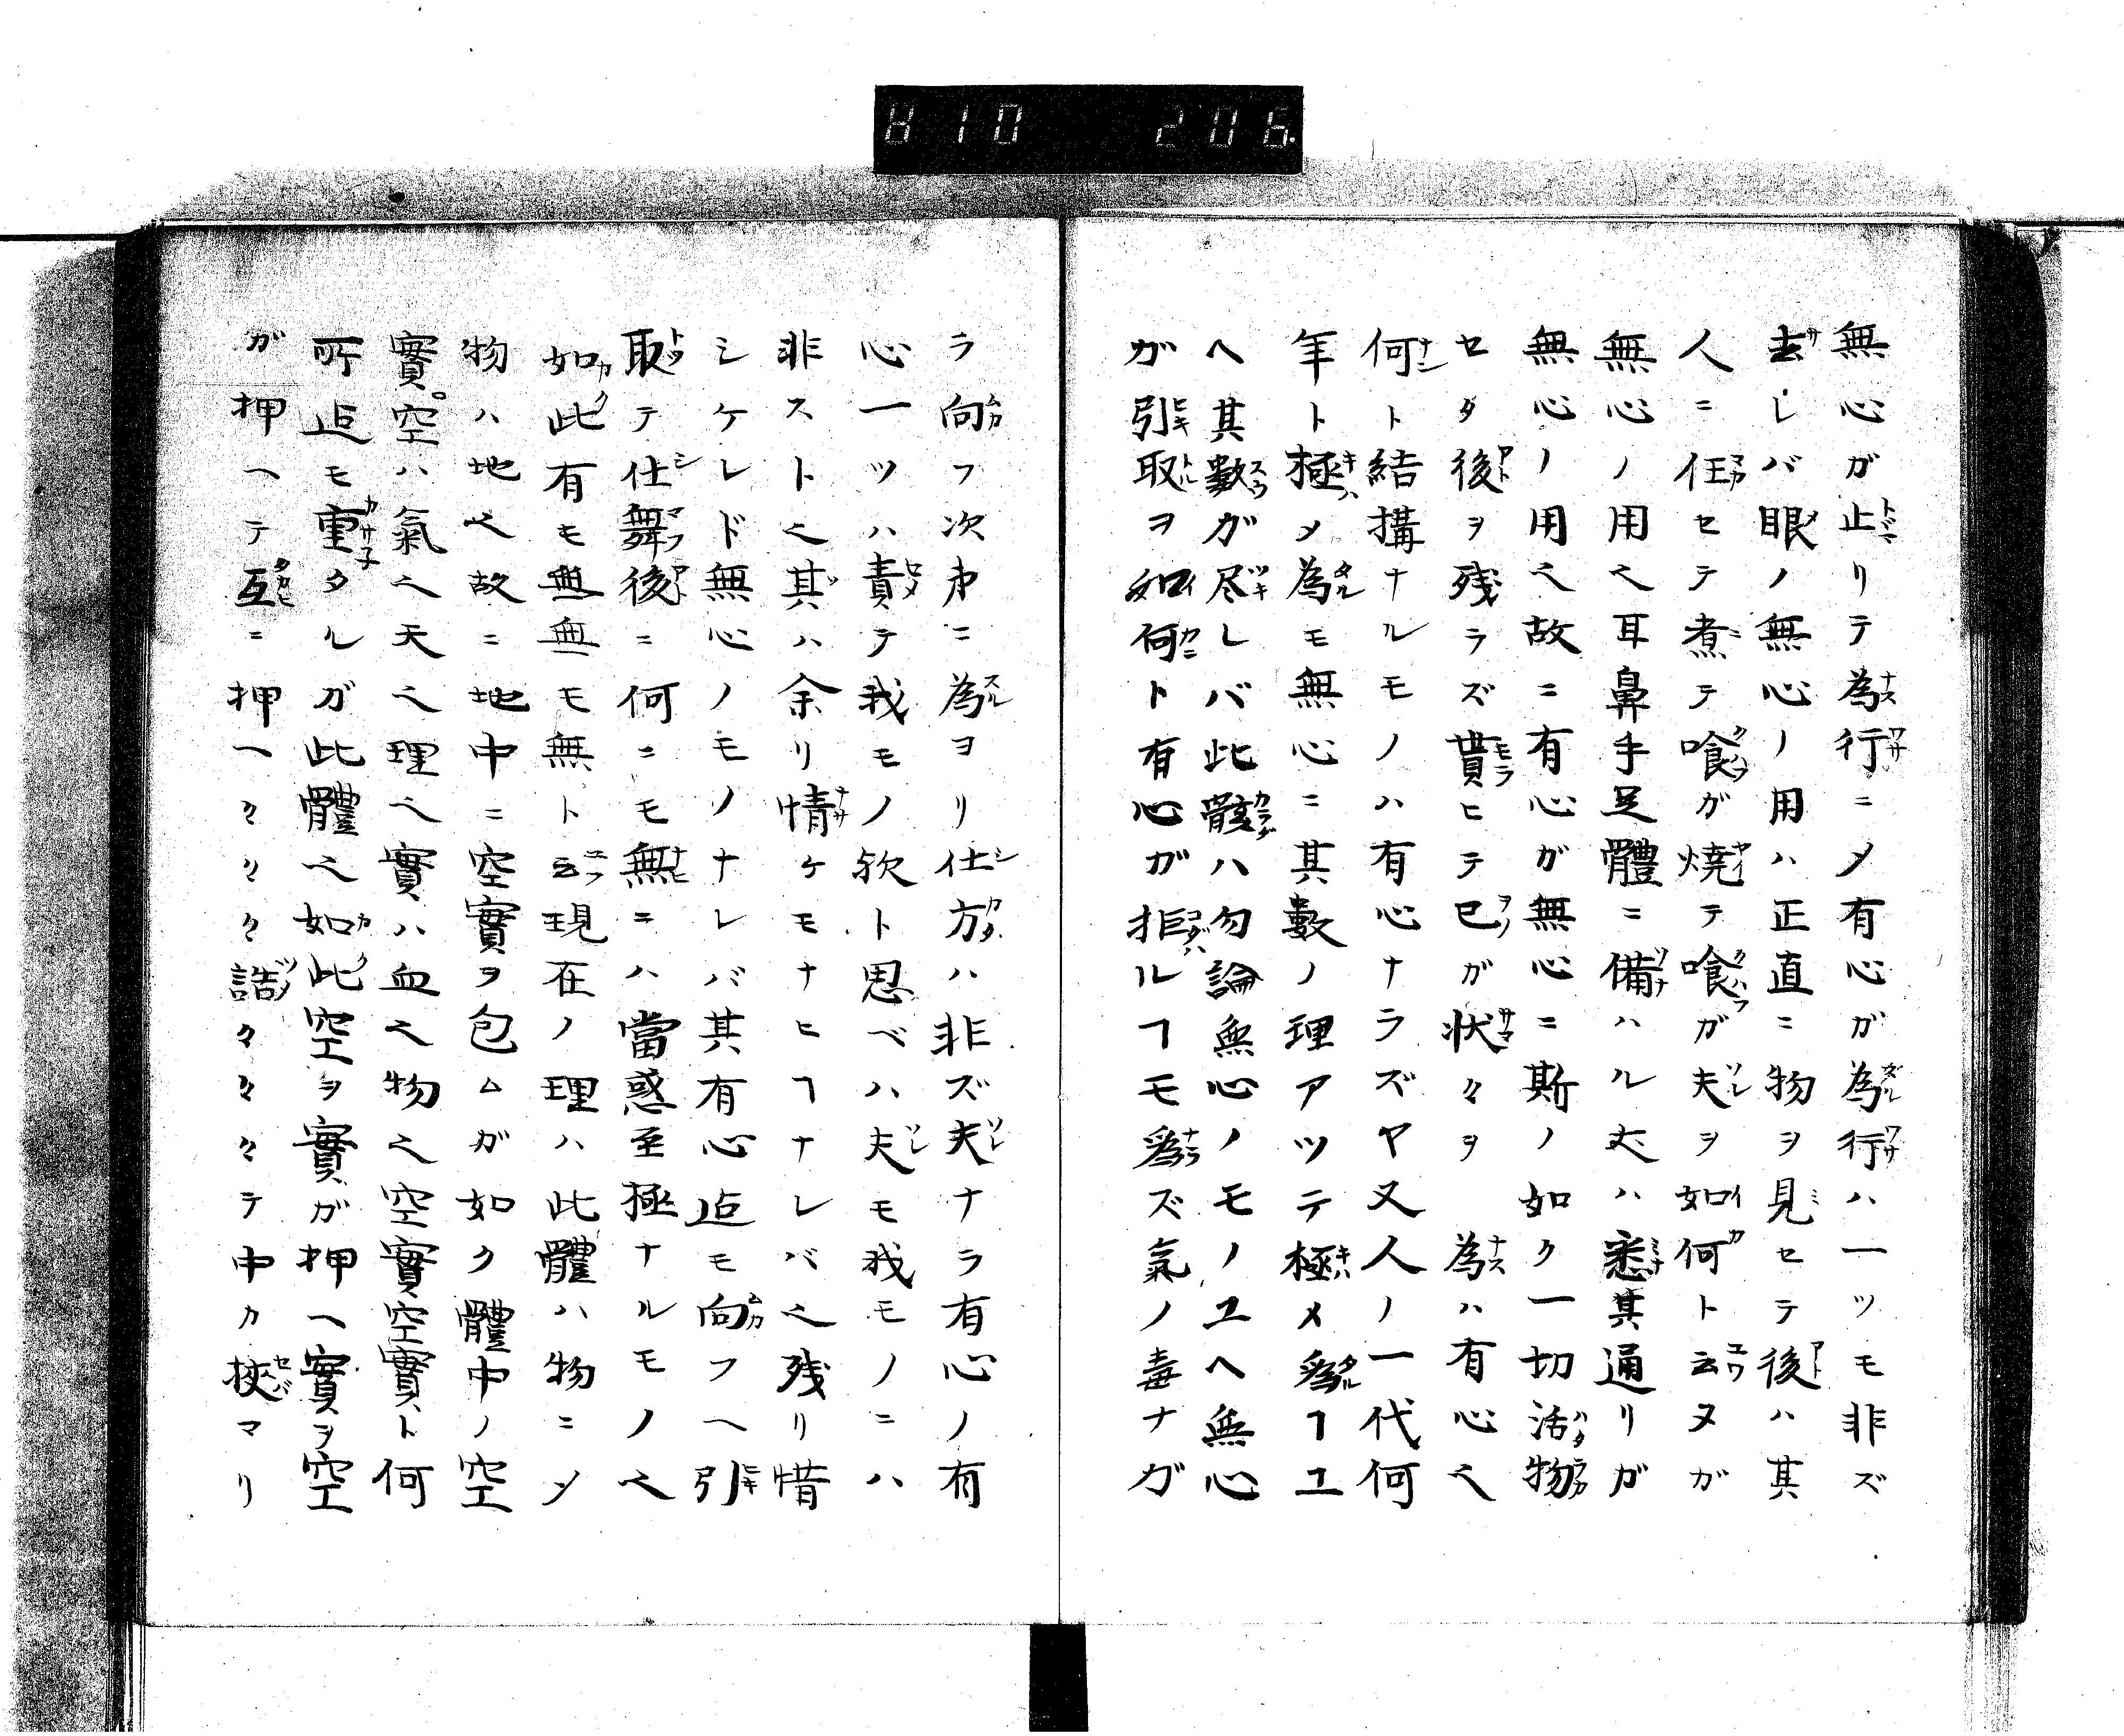 810 206.
無心ガ止リテ為行ニメ有心ガ為行ハ一ツモ非ズ
去レバ眼ノ無心ノ用ハ正直ニ物ヲ見セテ後ハ其
人ニ任セテ煮テ喰ガ焼テ喰ガ夫ヲ如何ト云ヌガ
無心ノ用〆耳鼻手足體ニ備ハル𠀋ハ悉其通リガ
無心ノ用〆故ニ有心ガ無心ニ斯ノ如ク一切活物
セタ後ヲ残ラズ貰ヒテ已ガ状々ヲ為ハ有心〆
何ト結構ナルモノハ有心ナラズヤ又人ノ一代何
年ト極メ為モ無心ニ其數ノ理アツテ極メ為ヿユ
ヘ其數ガ尽レバ此骸ハ勿論無心ノモノユヘ無心
ガ引取ヲ如何ト有心ガ拒ルヿモ為ズ氣ノ毒ナガ
ラ向フ次㐧ニ為ヨリ仕方ハ非ズ夫ナラ有心ノ有
心一ツハ責テ我モノ欤ト思ベハ夫モ我モノニハ
非スト〆其ハ余リ情ケモナヒヿナレバ〆残リ惜
シケレド無心ノモノナレバ其有心迠モ向フヘ引
取テ仕舞後ニ何ニモ無ニハ當惑至極ナルモノ〆
如此有モ無無モ無ト云現在ノ理ハ此體ハ物ニメ
物ハ地〆故ニ地中ニ空實ヲ包ムガ如ク體中ノ空
實。空ハ氣〆天〆理〆實ハ血〆物〆空實空實ト何
所迠モ重タルガ此體〆如此空ヲ實ガ押ヘ實ヲ空
ガ押ヘテ互ニ押ヘ々々々詰々々々テ中カ挾マリ